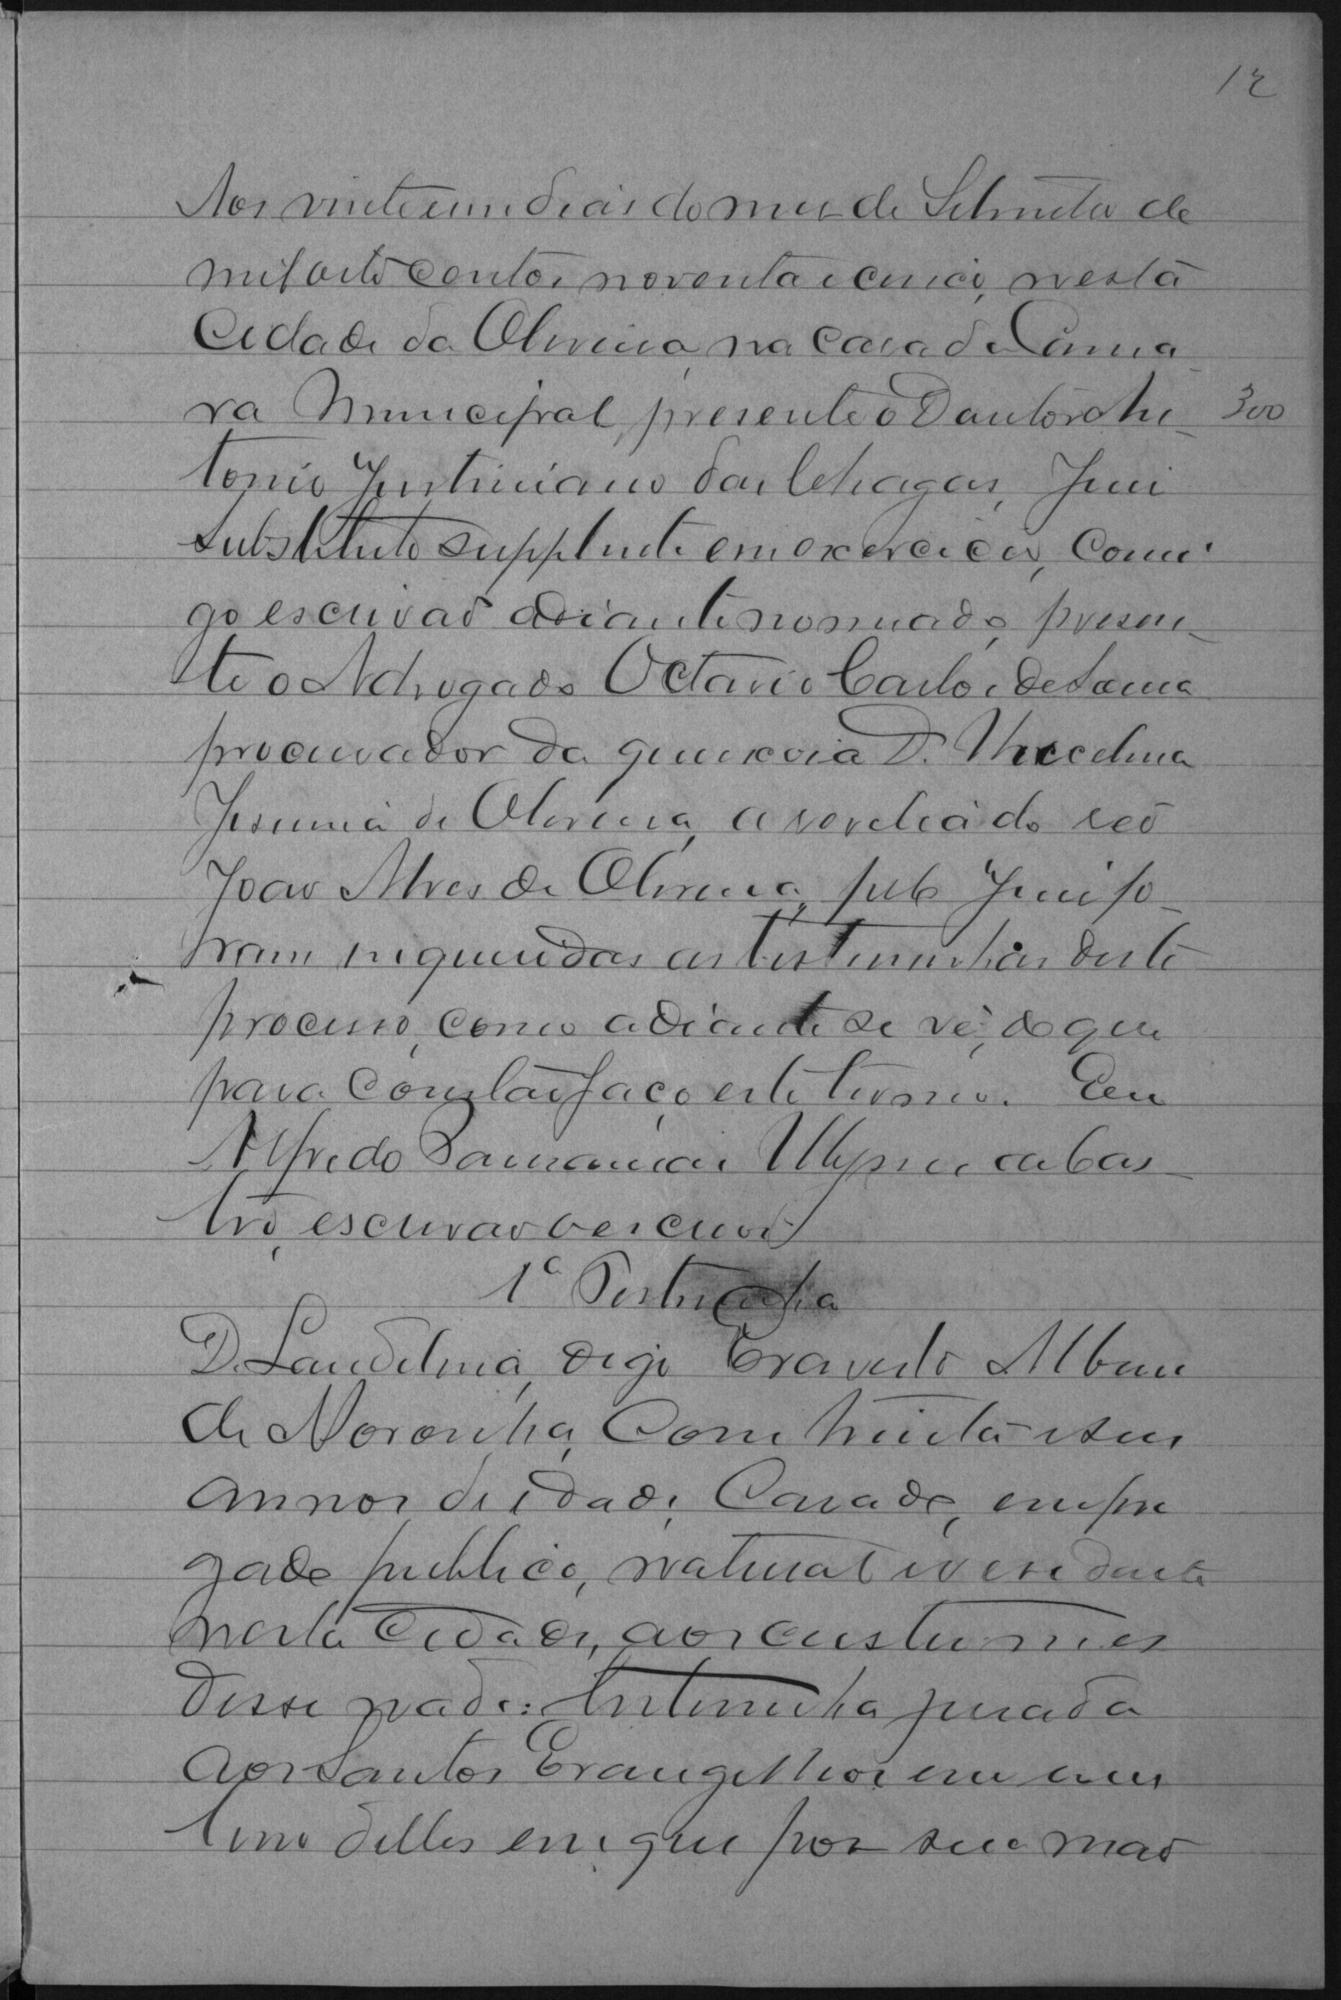 12
Aos vinte e um dias do mes de Setembro de
mil oito centos noventa e cinco, nesta
Cidade da Oliveira, na casa da Cama
ra Municipal, presente o Doutor An 300
tonio Justiniano das Chagas, Juiz
Substituto supplente em exercicio, comi
go escrivão adiante nomeado, presen
te o Advogado Octavio Carlos de
procurador da queixosa D.
de Oliveira, a revelia do reo
João Alves de Oliveira, pelo Juiz fo
ram inqueridas as testemunhas deste
processo, como adiante se vê, do que
para constar faço este termo. Eu
Alfredo Ulysses Cas
tro, escrivão o escrevi
1ª Testemunha
D. Laudelina, digo Evaristo
de Noronha, com trinta e seis
annos de idade, Casado, empre
gado publico, natural e residente
nesta Cidade, aos custumes
disse nada: testemunha jurada
aos Santos Evangelhos em um
livro delles em que por sua mão